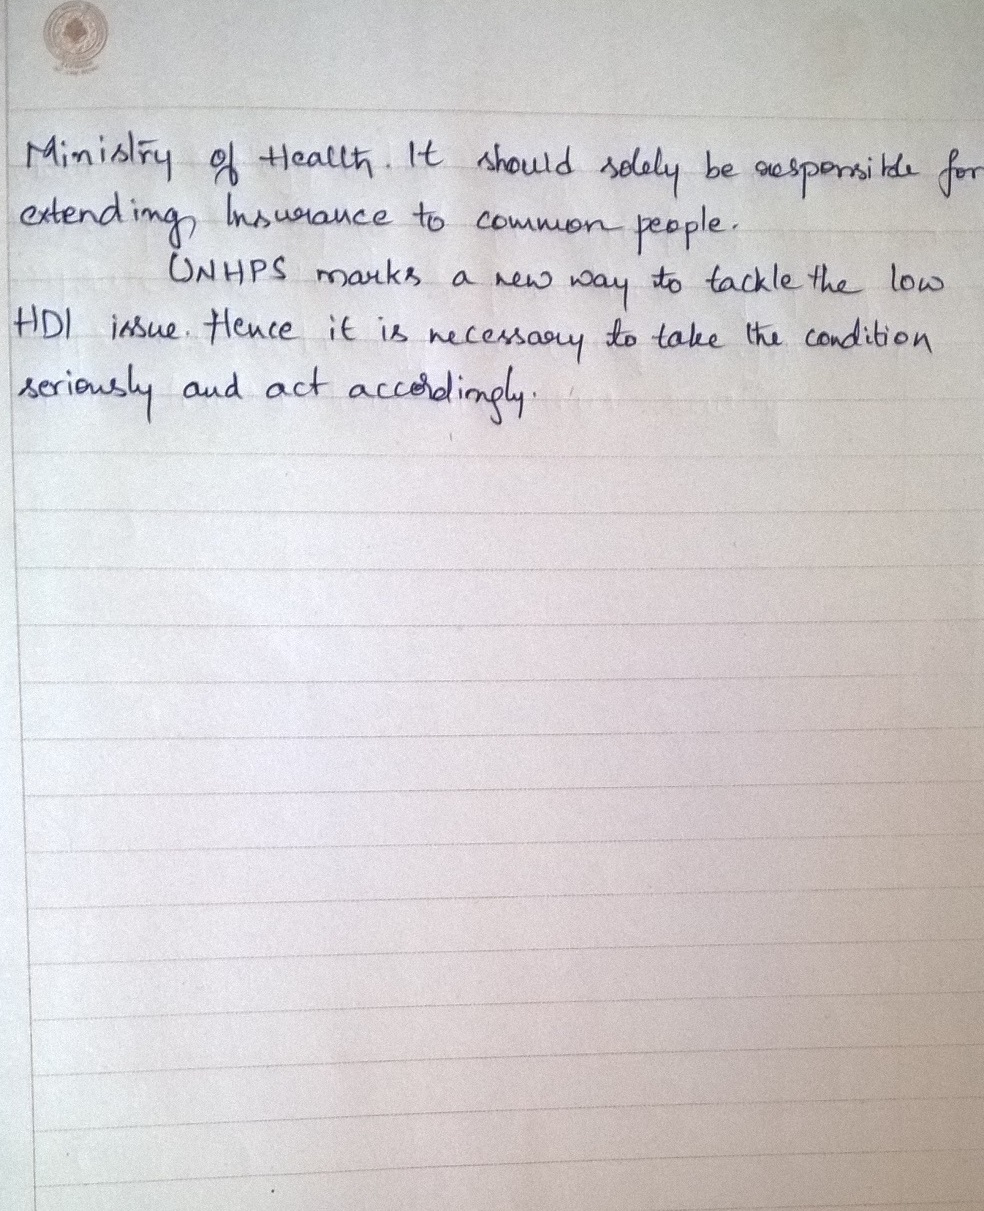 Ministry of Health. It should solely be responsible for
extending Insurance to common people.
UNHPS marks a new way to tackle the low
HDI issue. Hence it is necessary to take the condition
seriously and act accordingly.